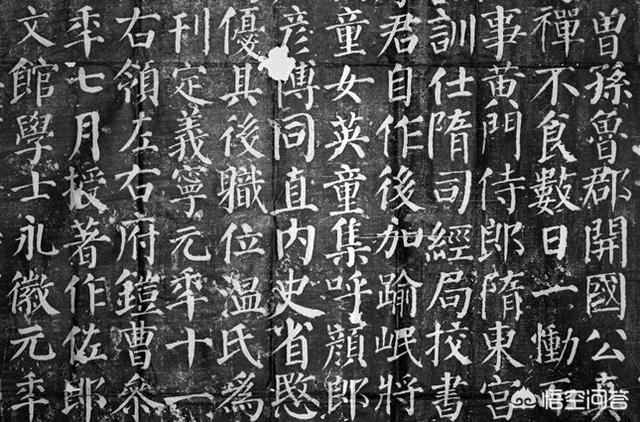 曾孫魯郡開國公真
禪不食數日一慟
事黃門侍郎隋東宮
訓仕隋司經局挍書
君自作後加踰岷將
童女英童集呼顏郎
彥博同直内史省愍
優其後職位温氏為
刊定義寧元年十一
右領左右府鎧曹參
年七月授著作佐郎
文館學士永徽元年
悟空问答